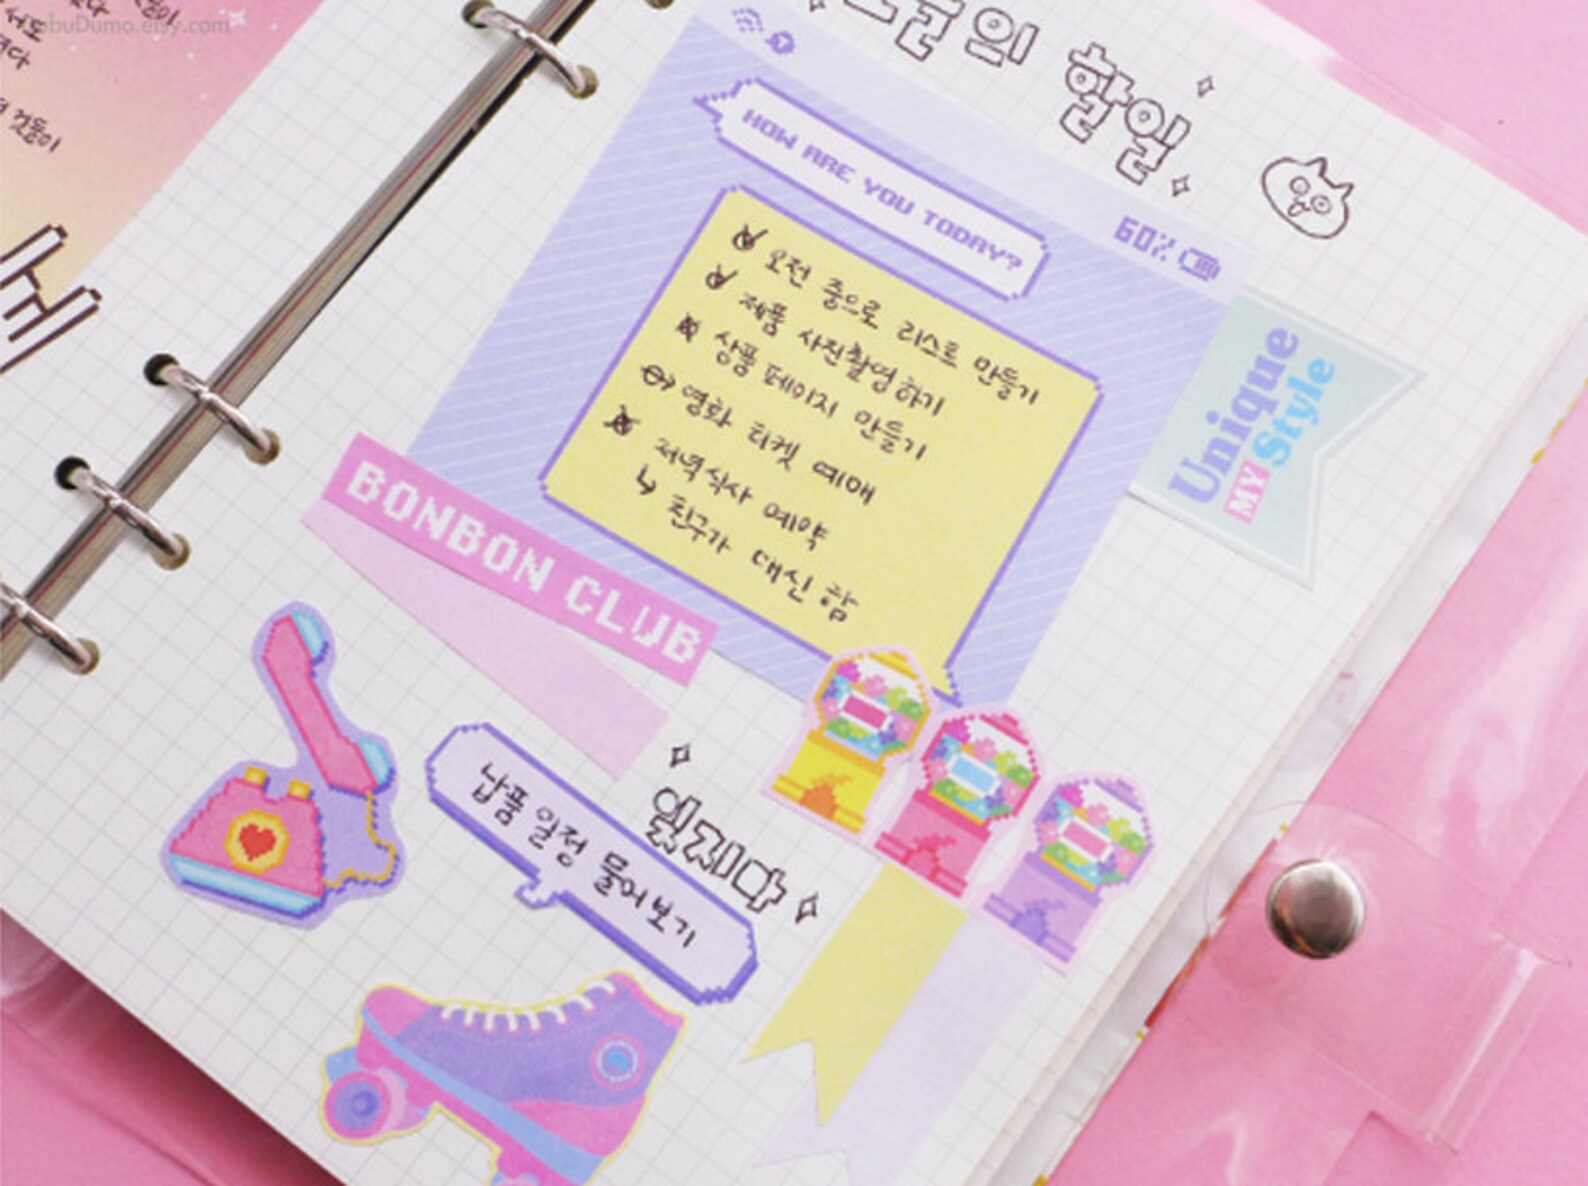 오늘의 할일
HOW ARE YOU TODAY?
60%
오전 중으로 리스트 만들기
제품 사진촬영하기
상품페이지 만들기
영화 티켓 예매
저녁식사 예약
친구가 대신 함
Unique
MY Style
BONBON CLUB
납품 일정 물어보기
잊지마